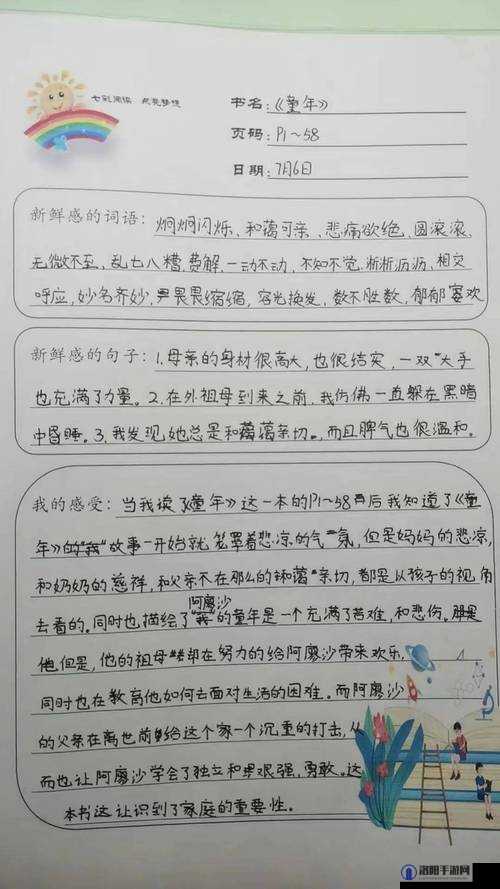 七彩阅读 点亮梦想
书名:《童年》
页码:P1~58
日期:7月6日
新鲜感的词语:炯炯闪烁、和蔼可亲、悲痛欲绝、圆滚滚、
无微不至,乱七八糟,费解,一动不动,不知不觉,淅淅沥沥,相交
呼应,妙名齐妙,畏畏缩缩,容光换发,数不胜数,郁郁寡欢
新鲜感的句子:1.母亲的身材很高大,也很结实,一双"大手
也充满了力量。2.在外祖母到来之前,我仿佛一直躲在黑暗
中昏睡。3.我发现她总是和蔼蔼亲切。,而且脾气也很温和。
我的感受:当我读了《童年》这一本的P1~58页后我知道了《童
年》的"我"故事一开始就笼罩着悲凉的气氛,但是妈妈的悲凉,
和奶奶的慈祥,和父亲不在那么的和蔼亲切,都是从孩子的视角
去看的。同时也描绘了"我"的童年是一个充满了苦难,和悲伤。
阿廖沙
他但是,他的祖母却在努力的给阿廖沙带来欢乐,
同时也在教育他如何去面对生活的困难。而阿廖沙
的父亲在离世前给这个家一个沉重的打击,从
而也让阿廖沙学会了独立和坚强,勇敢。这
本书这让识到了家庭的重要性。
洛阳手游网